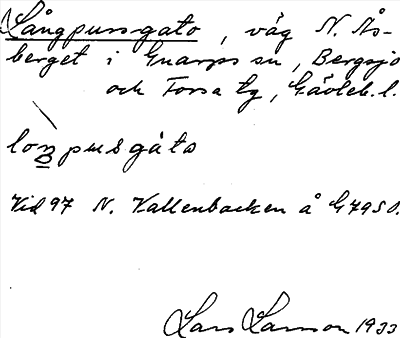 Långpussgato, väg N. Ås-
berget i Gnarps sn, Bergsjö
och Forsa tg, Gävleb. l.
loŋpusgåto
Vid 97 N. Kallenbacken å G 7950.
Lars Larsson 1933